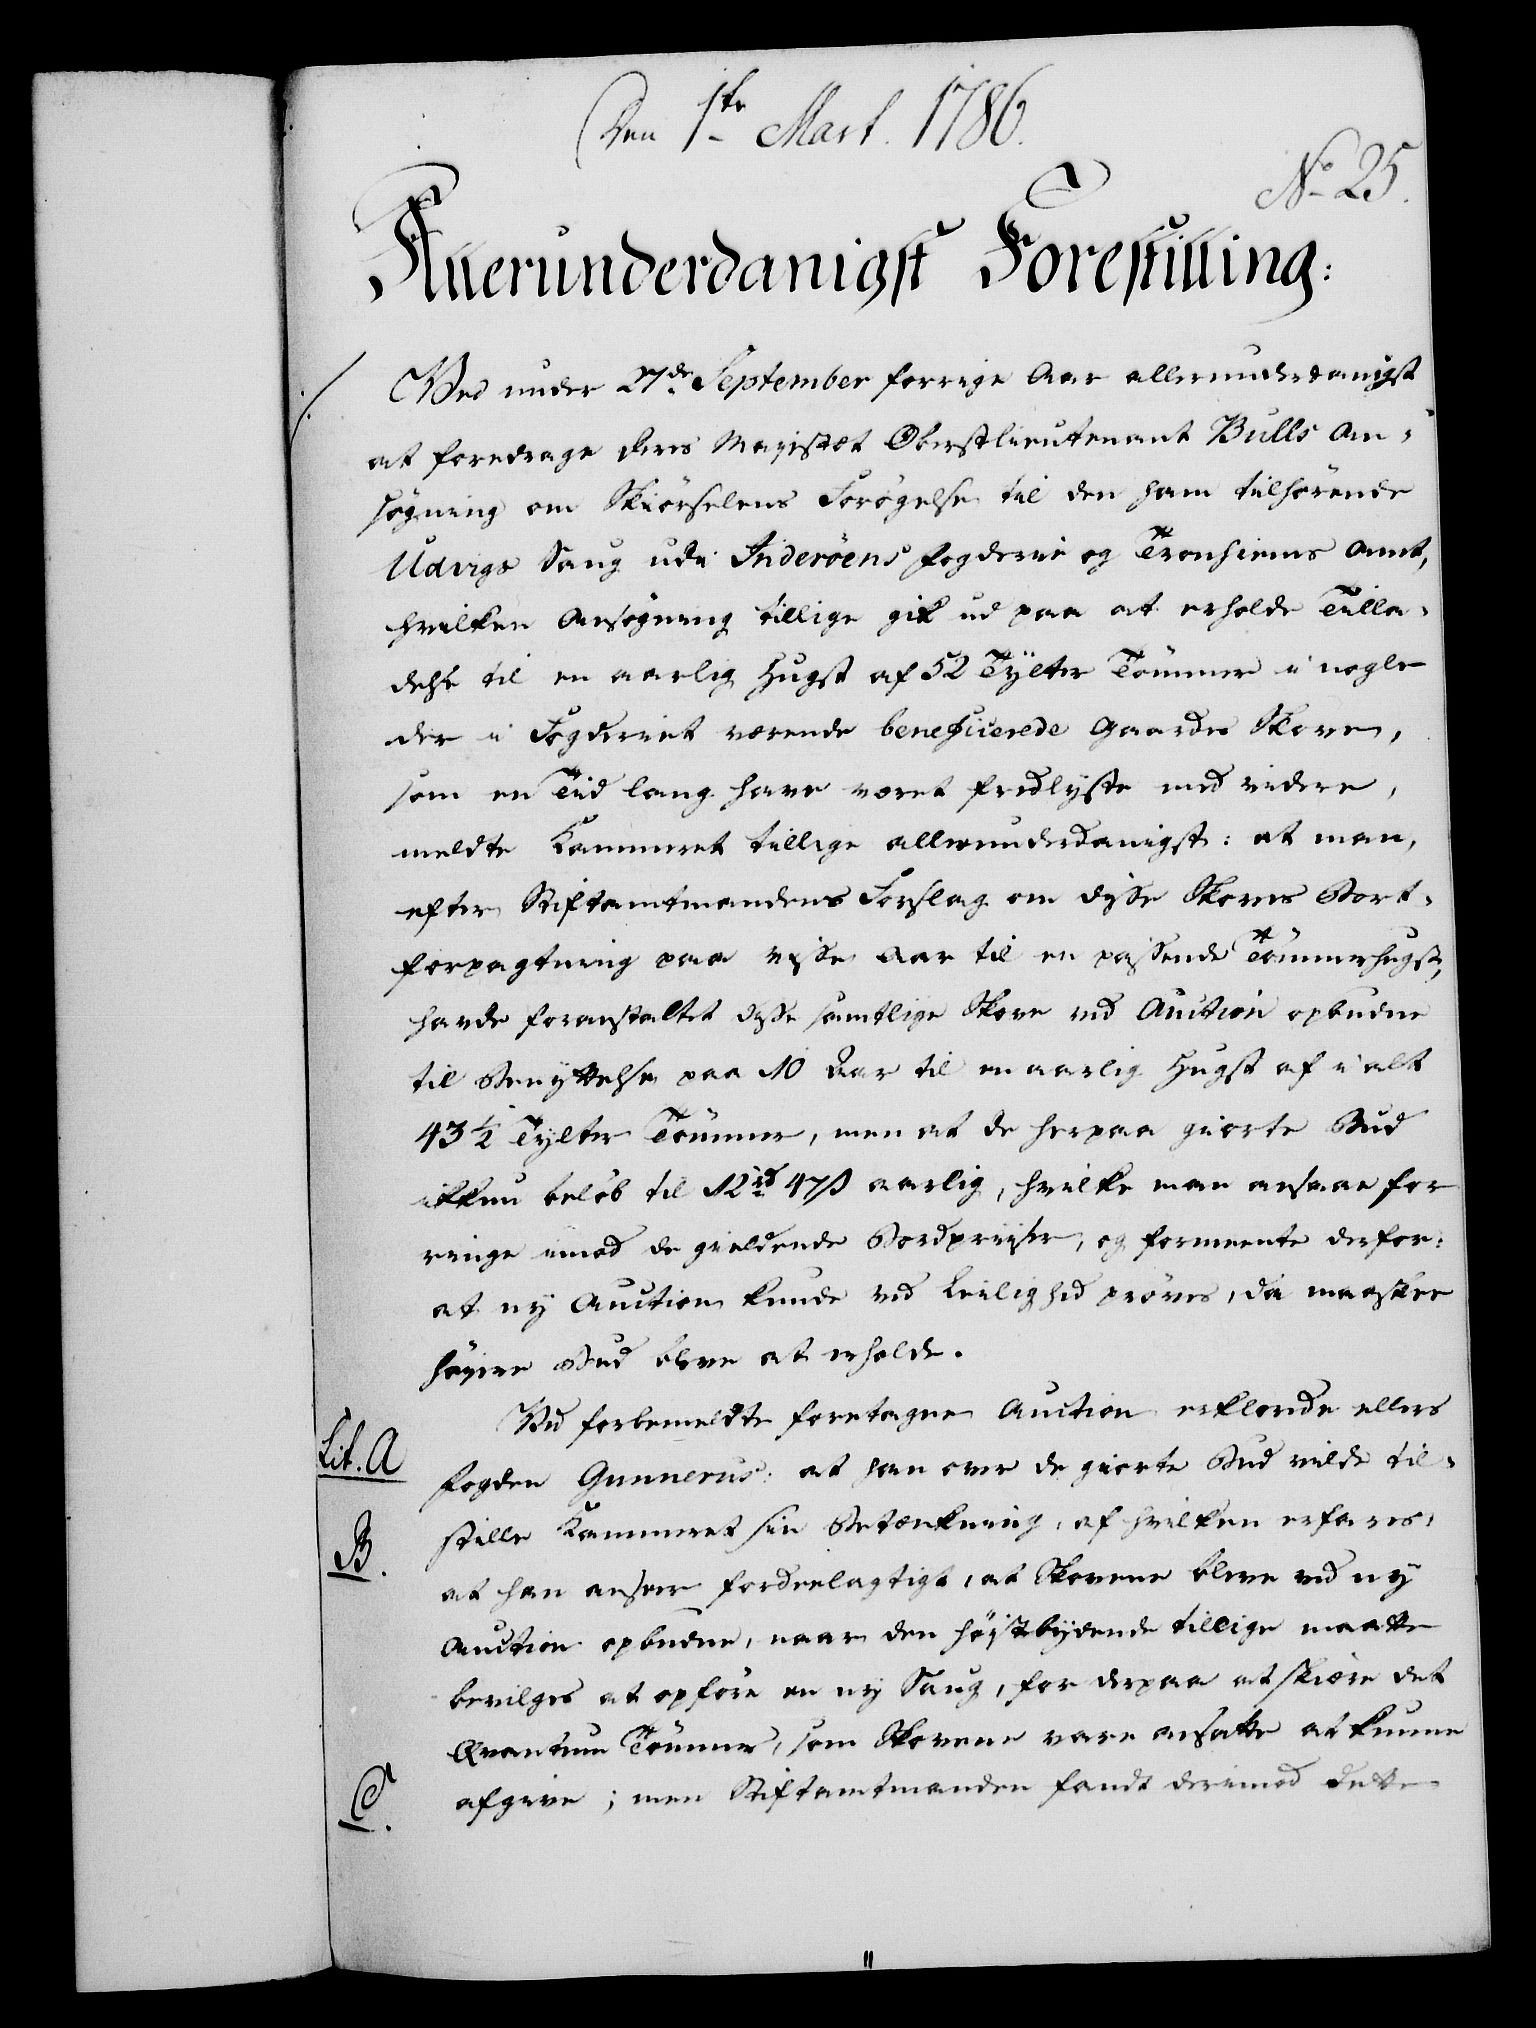 Den 1ste Mart. 1786.
No 25.
Allerunderdanigst Forestilling:
Ved under 27de September forrige Aar allerunderdanigst
at foredrage Deres Majestæt Oberstlieutenant Bulls An-
søgning om Skiørselens Forøgelse til den ham tilhørende
Udvigs Saug udi Inderöens Fogderie og Tronhiems Amt,
hvilken Ansøgning tillige gik ud paa at erholde Tilla-
delse til en aarlig Hugst af 52 Tylter Tømmer i nogle
der i Fogderiet værende beneficerede Gaardes Skove,
som en Tiid lang have været fredlyste med videre,
meldte Kammeret tillige allerunderdanigst: at man,
efter Stiftamtmandens Forslag om disse Skoves Bort-
forpagtning paa visse Aar til en passende Tømmerhugst,
havde foranstaltet disse samtlige Skove ved Auction opbudne
til Benyttelse paa 10 Aar til en aarlig Hugst af i alt
43 1/2 Tylter Tømmer, men at de herpaa giorte Bud
ikkun beløb til 12 rd 47 ß aarlig, hvilke man ansaae for
ringe imod de gieldende Bordpriiser, og formeente derfor:
at ny Auction kunde ved Leilighed prøves, da maaskee
høyere Bud bleve at erholde.
Ved forbemeldte foretagne Auction erklærede ellers
Lit. A
Fogden Gunnerus: at han over de giorte Bud vilde til-
stille Kammeret sin Betænkning, af hvilken erfares,
B.
at han ansaae fordeelagtigt, at Skovene bleve ved ny
Auction opbudne, naar den høistbydende tillige maatte
bevilges at opføre en ny Saug, for derpaa at skiære det
Qvantum Tømmer, som Skovene vare ansatte at kunne
C.
afgive; men Stiftamtmanden fandt derimod dette